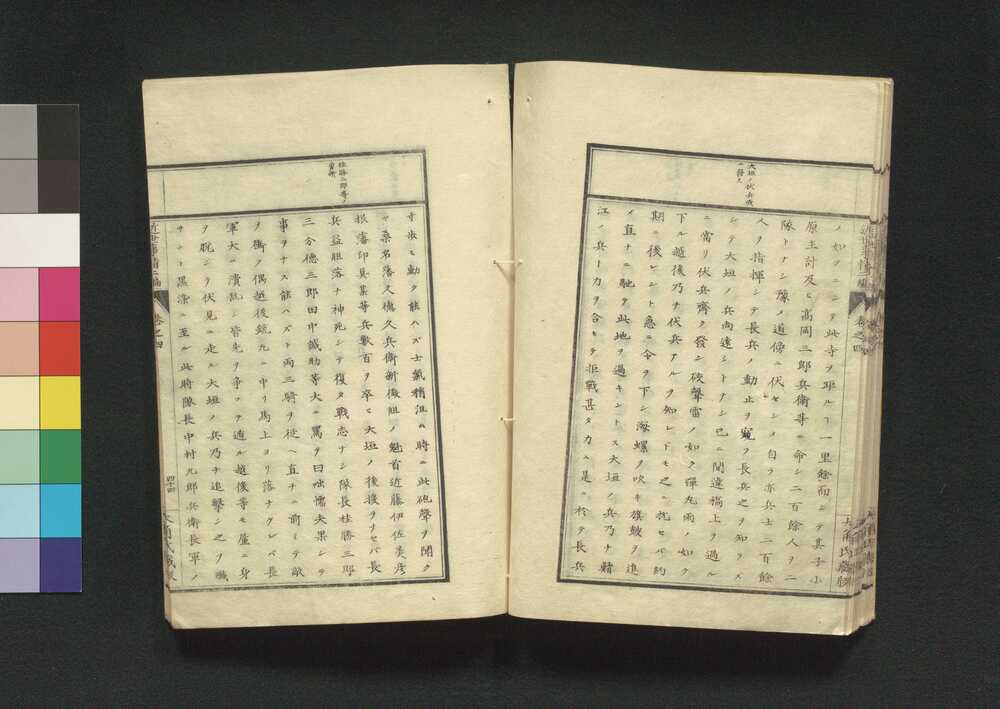 大垣ノ伏兵戎
ニ發ス
ノ如クニシテ此寺ヲ距ル丁一里餘而シテ其子小
原主計及ヒ高岡三郎兵衛等ニ命シ二百餘人ヲ二
隊トナシ豫メ道傍ニ伏セシメ自ラ亦兵士二百餘
人ヲ指揮シテ長兵ノ動止ヲ窺フ長兵之ヲ知ラズ
シテ大垣ノ兵尚遠シトナシ已ニ間違橋上ヲ過ル
ニ當リ伏兵齊ク發シ砲聲雷ノ如ク彈丸雨ノ如ク
下ル越後乃チ伏兵アルヲ知レドモ之ニ抗セバ約
期ニ後レント急ニ令ヲ下シ海螺ヲ吹キ旗皷ヲ進
メ直チニ馳セ此地ヲ過キントス大垣ノ兵乃チ諸
江ノ兵ト力ヲ合セテ拒戰甚タ力ム是ニ於テ長兵
近世事情二編
卷之四
大角氏藏版
桂勝三郎等ノ
勇憤
寸歩モ動ク能ハズ士氣稍沮ム時ニ此砲聲ヲ聞ク
ヤ桑名藩久德久兵衛新撰組ノ魁首近藤伊佐美彦
根藩印具某等兵數百ヲ卒ヒ大垣ノ後援ヲナセバ長
兵益胆落チ神死シテ復タ戰志ナシ隊長桂勝三郎
三分德三郎田中誠助等大ニ罵テ曰咄懦夫果シテ
事ヲナス能ハズト両三騎ヲ従ヘ直チニ前ミテ敵
ヲ衝ク偶越後銃丸ニ中リ馬上ヨリ落ケレバ長
軍大ニ潰乱シ皆先ヲ爭フテ遁ル越後等モ僅ニ身
ヲ脱シテ伏見ニ走ル大垣ノ兵乃チ追擊シ之ヲ殱
サント黒染ニ至ル此時隊長中村九郎兵衛長軍ノ
近世事情二編
卷之四
四十四
大角氏藏版